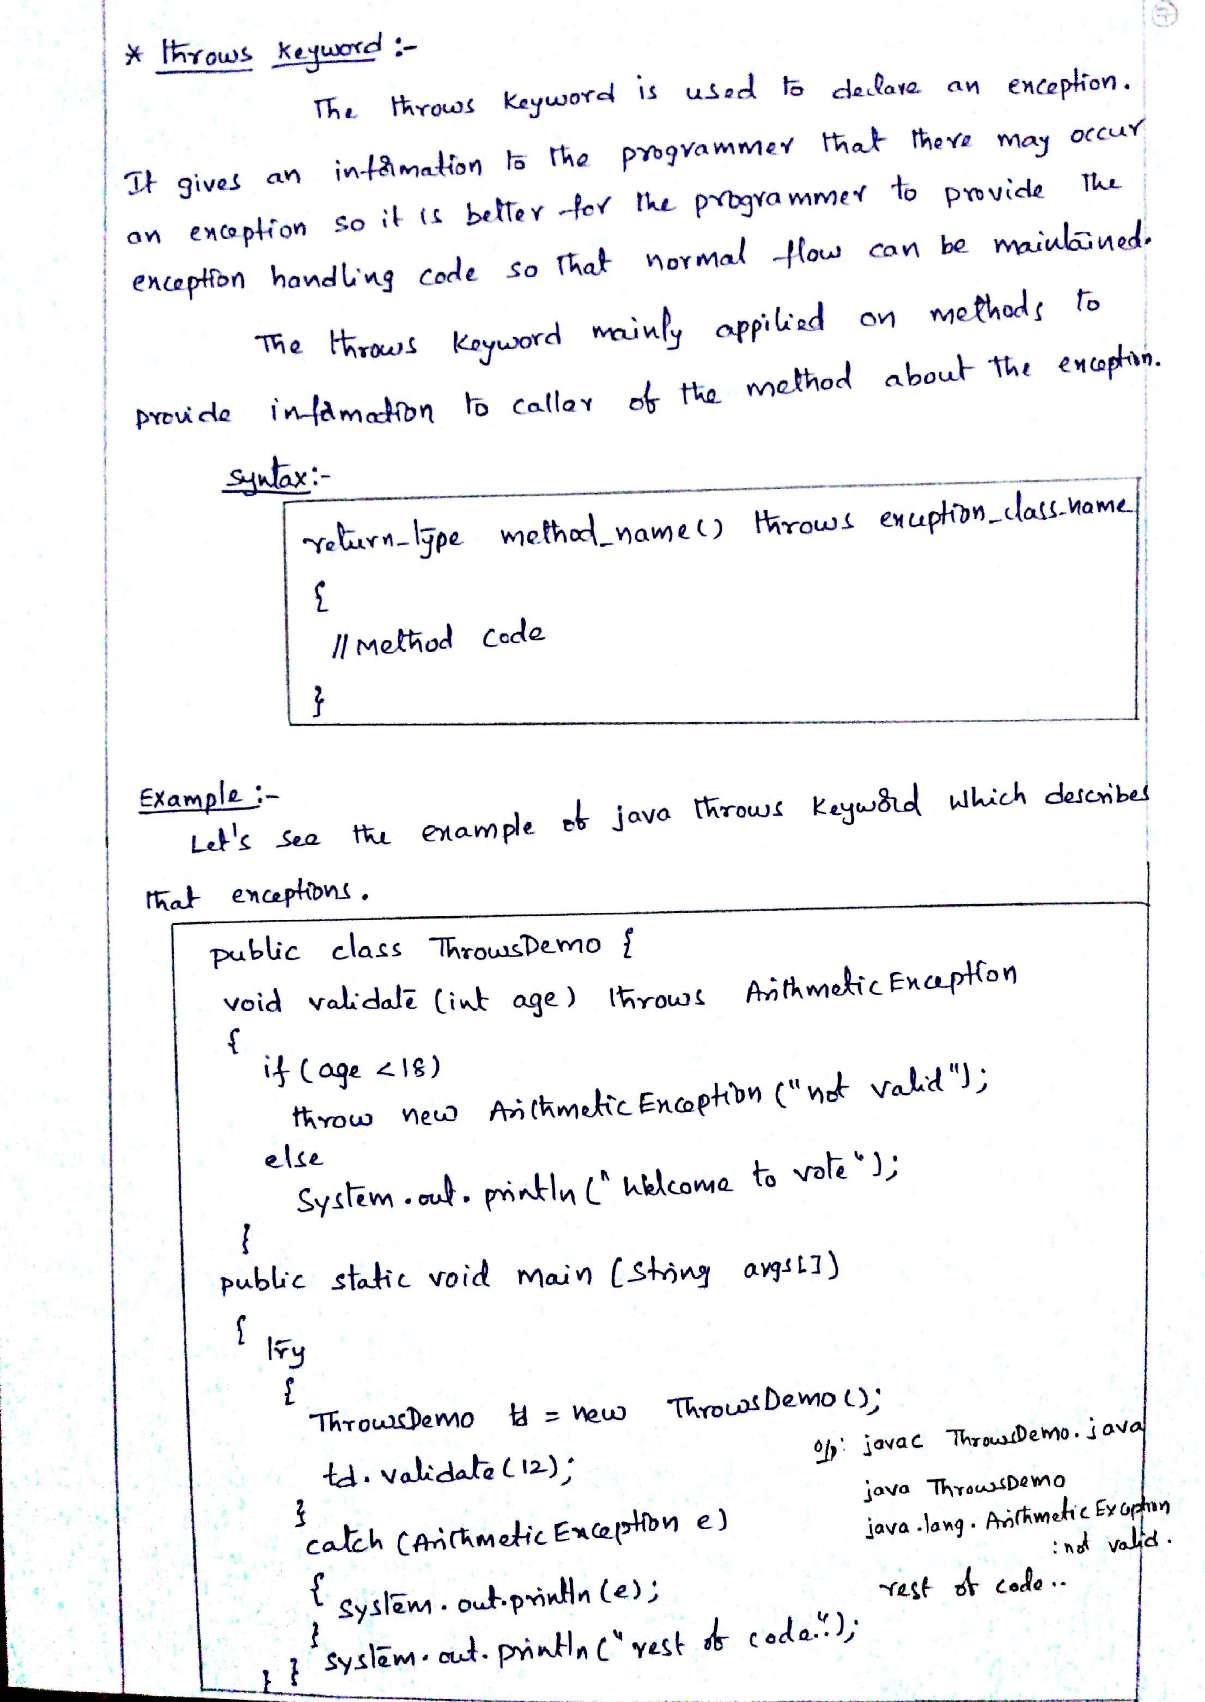 * throws keyword :-
The throws keyword is used to declare an exception.
It gives an information to the programmer that there may occur
an exception so it is better for the programmer to provide the
exception handling code so that normal flow can be maintained.
The throws keyword mainly appilied on methods to
provide information to caller of the method about the exception.
syntax:-
return_type method_name() throws exception_class_name
{
// Method code
}
Example :-
Let's see the example of java throws keyword which describes
that exceptions.
public class ThrowsDemo {
void validate (int age) throws ArithmeticException
{
if (age <18)
throw new ArithmeticException ("not valid");
else
System.out.println ("Welcome to vote");
}
public static void main (String args[])
{
try
{
ThrowsDemo td = new ThrowsDemo ();
td.validate(12);
}
catch (ArithmeticException e)
{
system.out.println (e);
}
system.out.println (" rest of code..");
} }
o/p: javac ThrowsDemo.java
java ThrowsDemo
java.lang.ArithmeticException
: not valid.
rest of code..